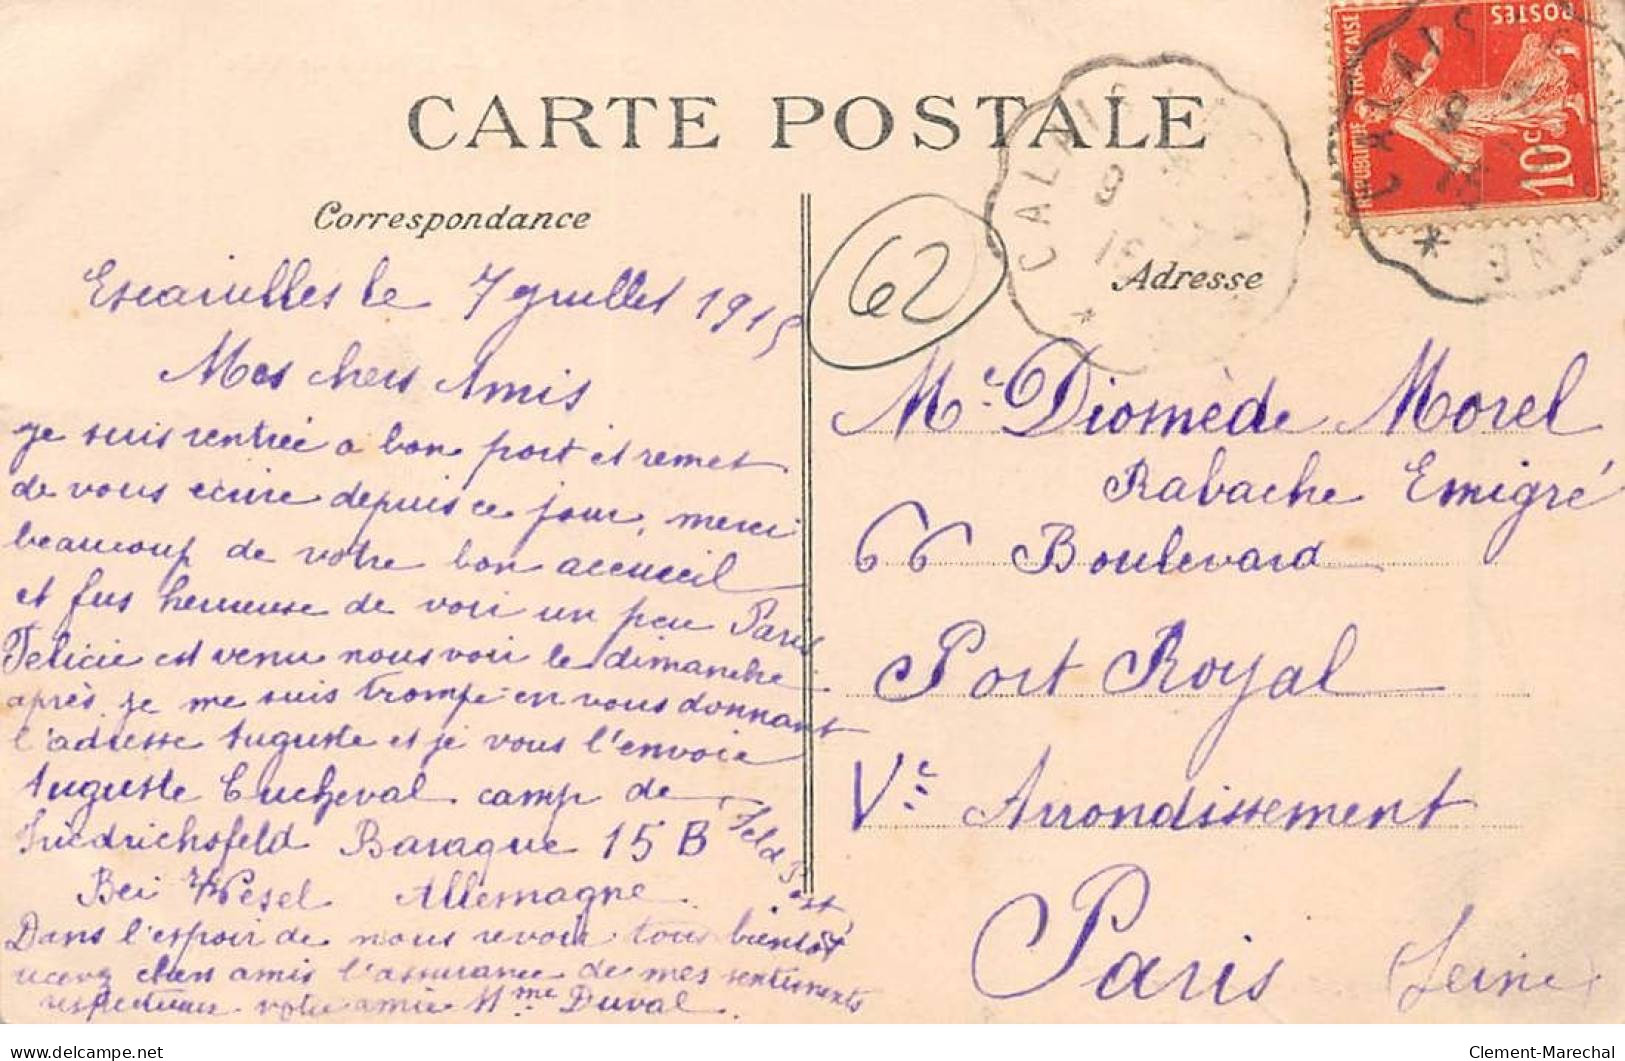 CARTE POSTALE
Correspondance
Adresse
62
CALAIS
CALAIS
REPUBLIQUE FRANÇAISE
POSTES
10c
le 7 juillet 1915
Mes chers Amis
je suis rentrée a bon port et remet
de vous écrire depuis ce jour, merci
beaucoup de votre bon accueil
et fus heureuse de voir un peu Paris
Felicie est venu nous voir le dimanche
après je me suis trompé en vous donnant
l'adresse Auguste et je vous l'envoie
Auguste Cucheval camp de
Friedrichsfeld Baraque 15 B
Feld Post
Bei Wesel Allemagne
Dans l'espoir de nous revoir tous bientôt
recevez chers amis l'assurance de mes sentiments
respectueux votre amie Mme Duval.
Mr Diomède Morel
Rabache Emigré
66 Boulevard
Port Royal
Ve Arrondissement
Paris (Seine)
Clement-Marechal
delcampe.net